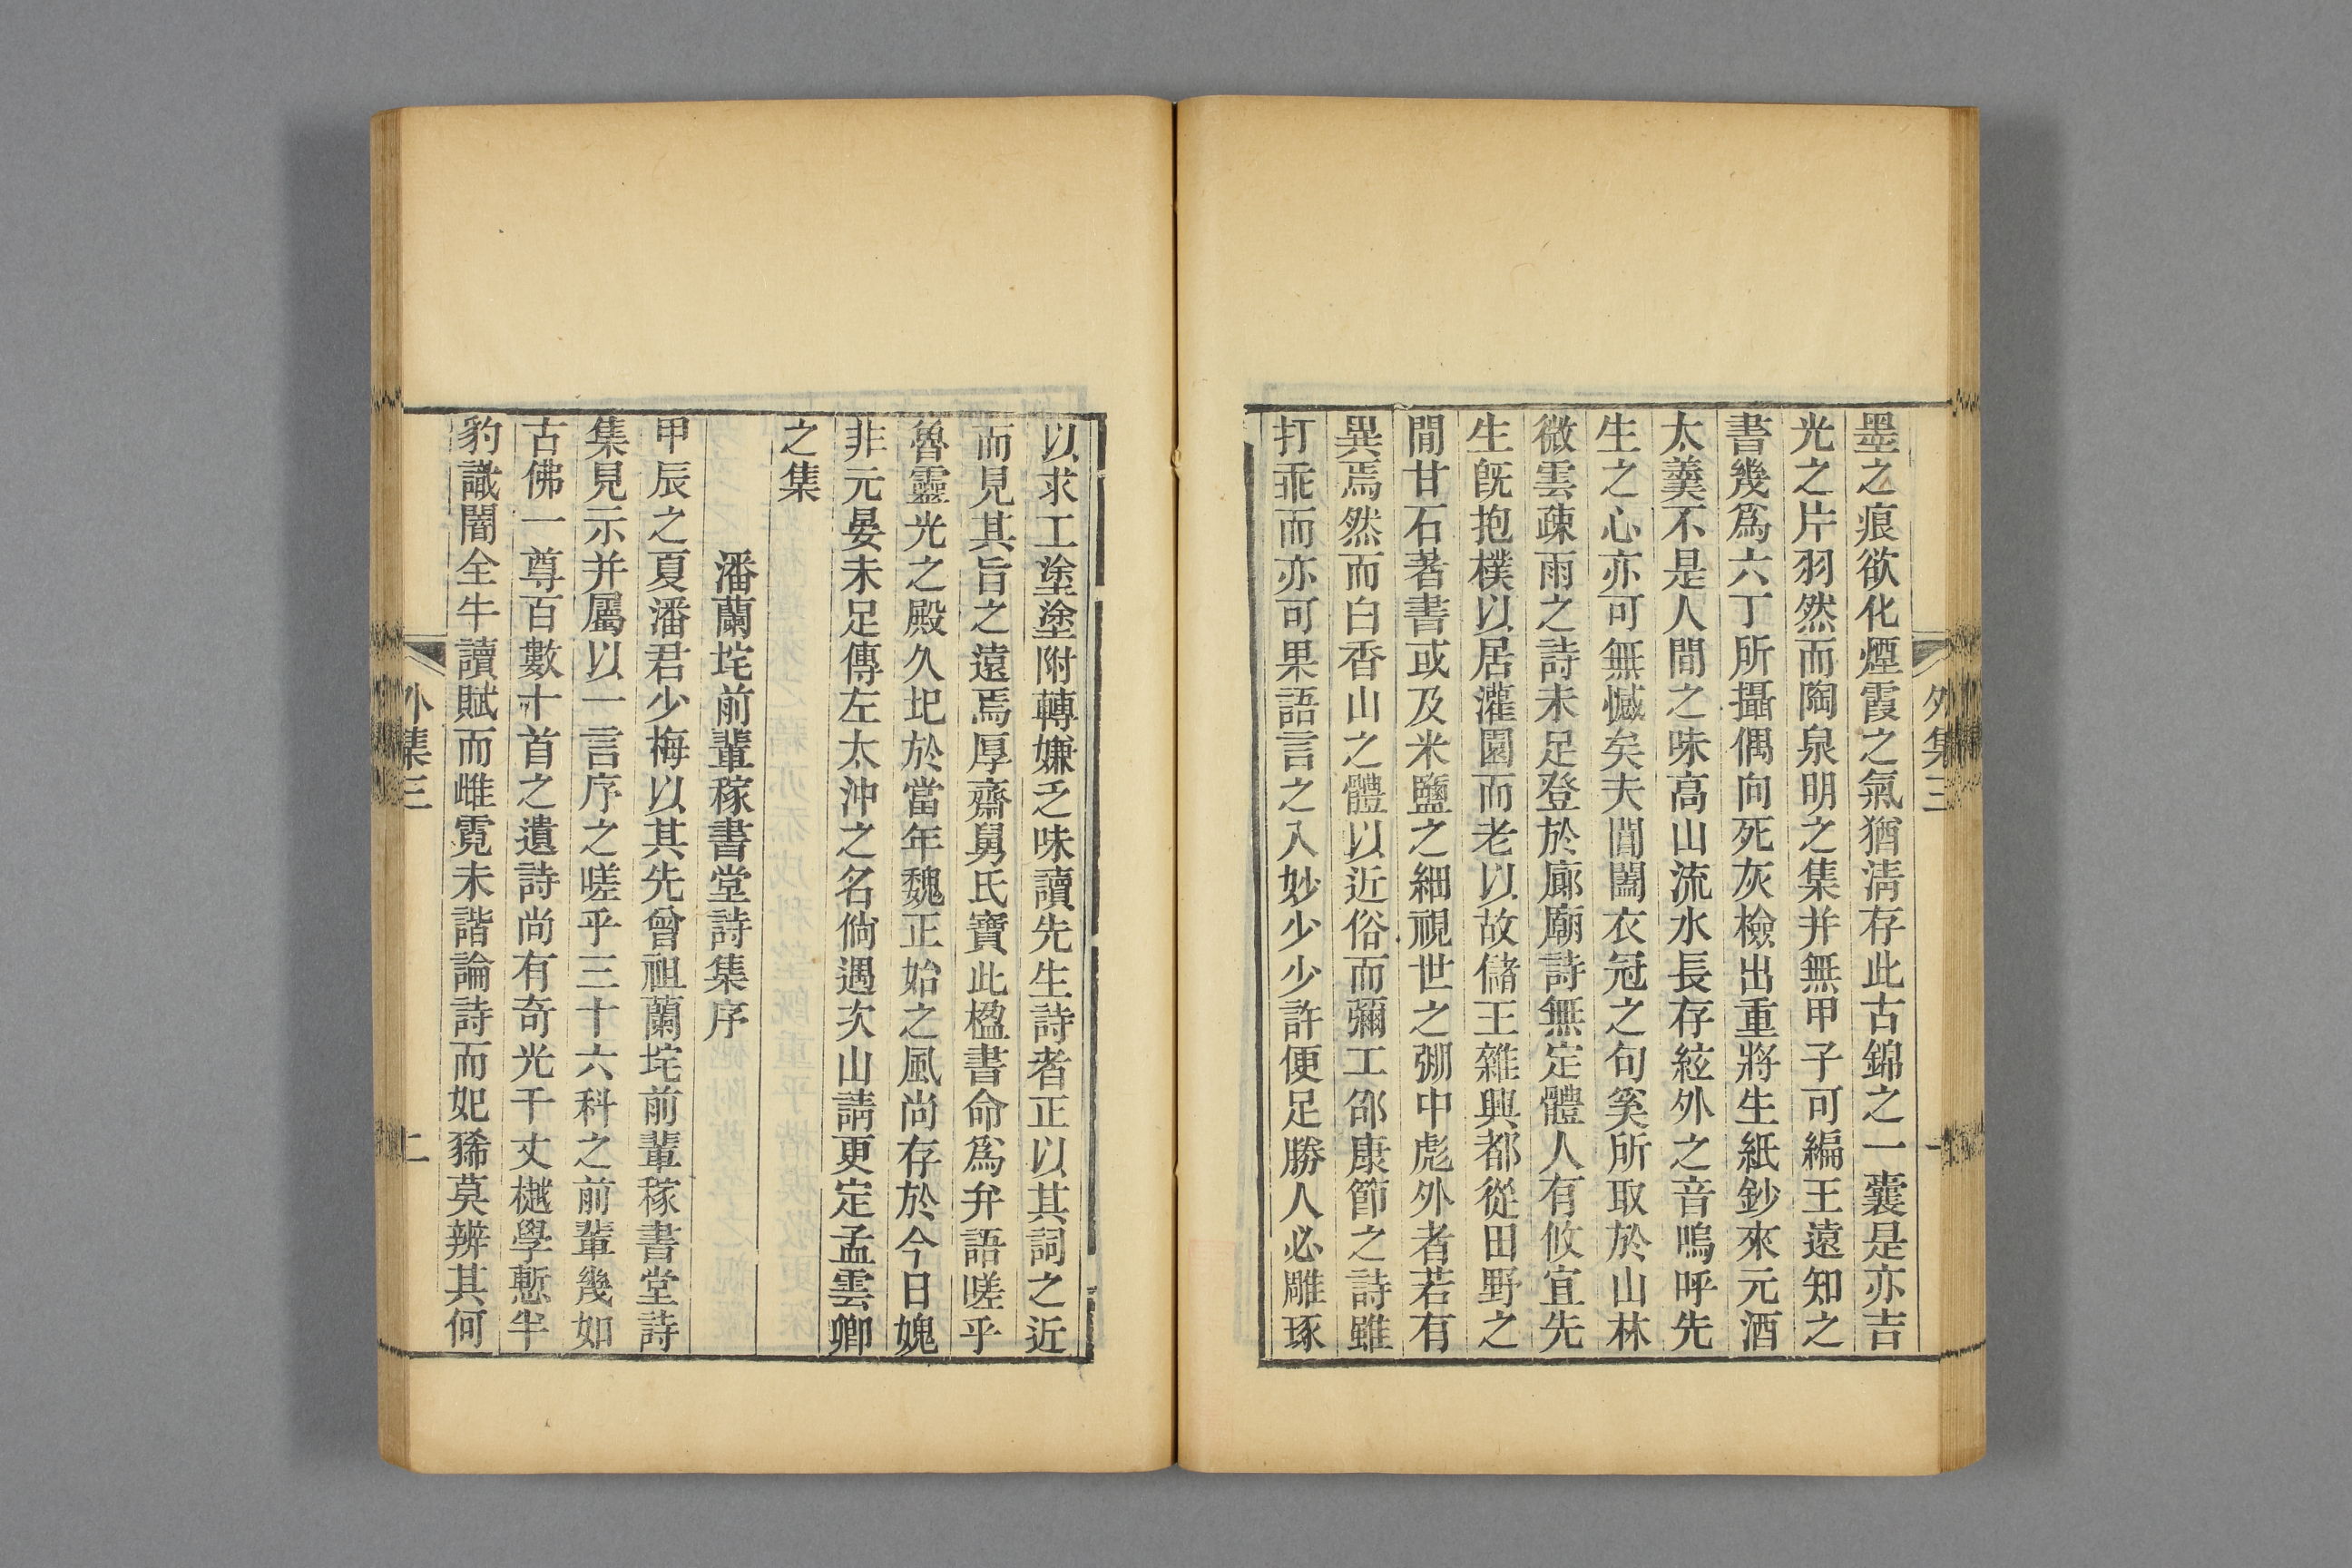 墨之痕欲化煙霞之氣猶淸存此古錦之一囊是亦吉
光之片羽然而陶泉明之集并無甲子可編王遠知之
書幾爲六丁所攝偶向死灰檢出重將生紙鈔來元酒
太羹不是人間之味高山流水長存絃外之音嗚呼先
生之心亦可無憾矣夫閶闔衣冠之句奚所取於山林
微雲疎雨之詩未足登於廊廟詩無定體人有攸宜先
生旣抱樸以居灌園而老以故儲王雜興都從田野之
間甘石著書或及米鹽之細視世之弸中彪外者若有
異焉然而白香山之體以近俗而彌工邵康節之詩雖
打乖而亦可果語言之入妙少少許便足勝人必雕琢
外集三
一
以求工塗塗附轉嫌乏味讀先生詩者正以其詞之近
而見其旨之遠焉厚齋舅氏寶此楹書命爲弁語嗟乎
魯靈光之殿久圯於當年魏正始之風尚存於今日媿
非元晏未足傳左太沖之名倘遇次山請更定孟雲卿
之集
潘蘭垞前輩稼書堂詩集序
甲辰之夏潘君少梅以其先曾祖蘭垞前輩稼書堂詩
集見示并屬以一言序之嗟乎三十六科之前輩幾如
古佛一尊百數十首之遺詩尚有奇光千丈樾學慙半
豹識闇全牛讀賦而雌霓未諧論詩而妃豨莫辨其何
外集三
二